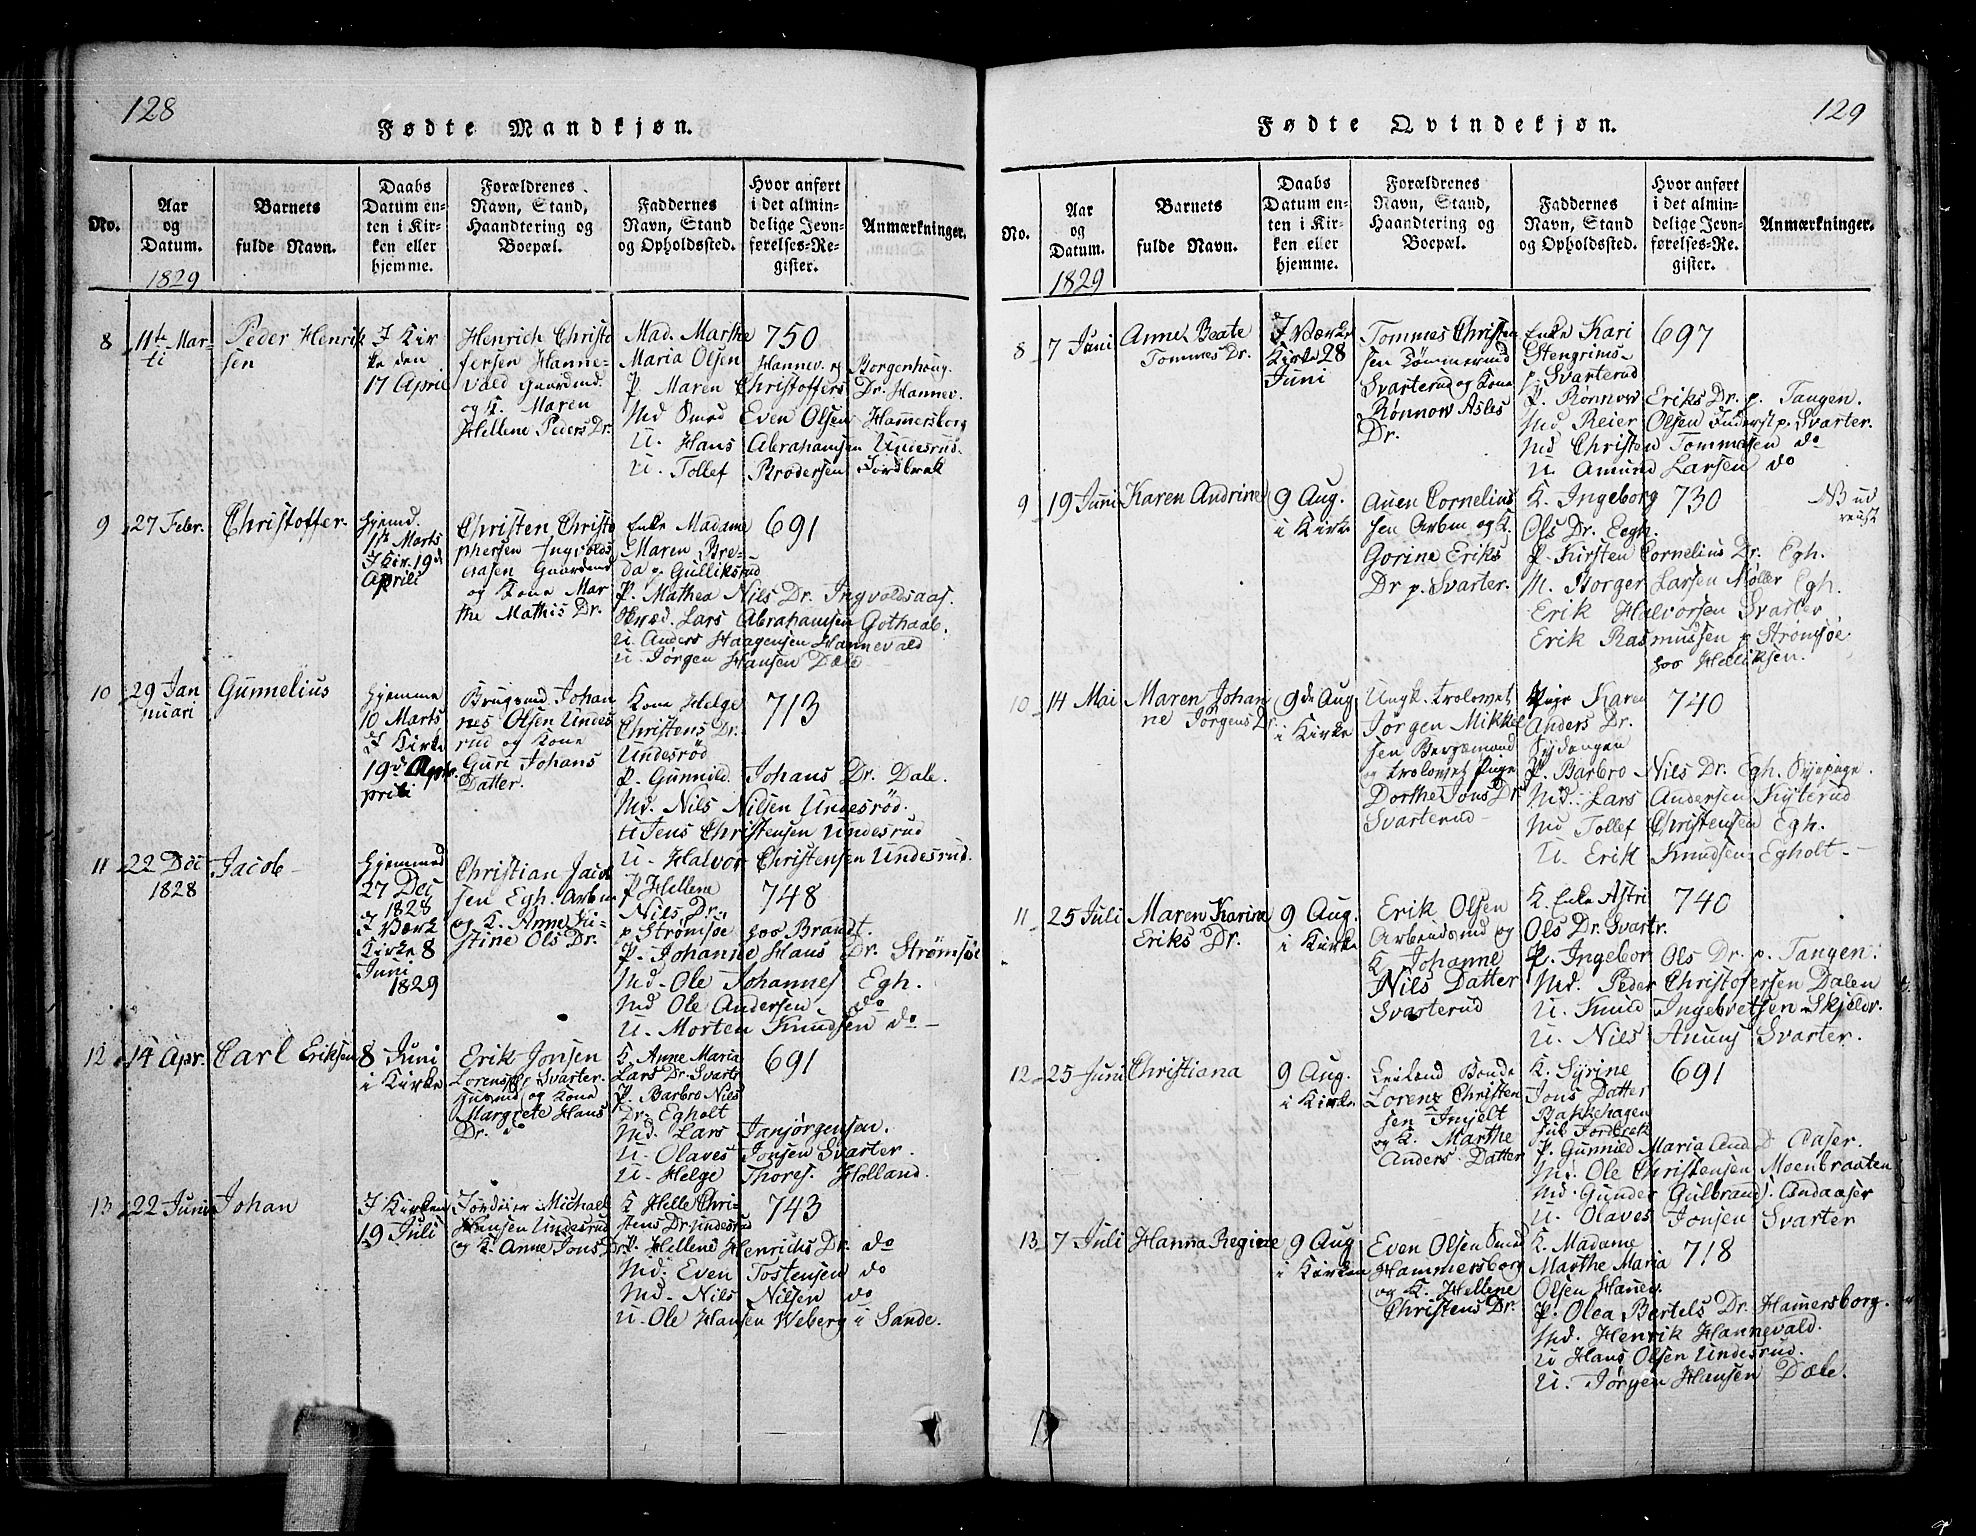 128
Fødte Mandkjøn.
No.
Aar
og
Datum.
1829
Barnets
fulde Navn.
Daabs
Datum en-
ten i Kir-
ken eller
hjemme.
Forældrenes
Navn, Stand,
Haandtering og
Boepæl.
Faddernes
Navn, Stand
og Opholdssted.
Hvor anført
i det almin-
delige Jevn-
førelses-Re-
gister.
Anmærkninger.
8
11te Mar-
ti
Peder Henrik
sen
I Kir
ke den
17 April
Henrich Christo
fersen Hanne-
vald Gaardmd.
og K. Maren
Hellene Peders Dr.
750
Mad. Marthe
Maria Olsen Hannev. og Borgenhoug.
P. Maren Christoffers Dr. Hannev.
Md Smed Even Olsen Hammersborg
U. Hans Abrahamsen Undesrud.
U. Tollef Brodersen Fordbrek
9
27 Febr.
Christoffer.
hjemd.
Marts
I Kir. 19d
Aprili
Christen Christo
phersen Ingvolds
aasen Gaardmd
og Kone Mar
the Mathis Dr.
691
Enke Madame
Maren Bre-
da p. Gulliksrud
P. Mathea Nils Dr. Ingvoldsaas.
Skræd. Lars Abrahamsen Gothaab.
U. Anders Haagensen Hannevald
U. Jørgen Hansen Dæle
10
29 Jan
nuari
Gunnelius
hjemme
10 Marts
I Kirke
19d Apr.
prili
Brugsmd Johan
nes Olsen Undes
rud og Kone
Guri Johans
Datter.
713
Kone Helge
Christens Dr.
Undesrød
P. Gunnild Johans Dr. Dale.
Md. Nils Nilsen Undesrød.
U Jens Christensen Undesrud
U. Halvor Christensen Undesrud.
11
22 Dec
1828
Jacob
hjemmed
27 Dec
1828
I Værk
Kirke 8
Juni
1829
Christian Jacob
sen Egh. Arbm
og K. Anne Ki-
stine Ols Dr.
748
P. Hellene
Nils Dr.
p. Strømsøe hoo Brandt.
P. Johanne Hans Dr. Strømsøe
Md. Ole Johannes Egh.
Md Ole Andersen do
U. Morten Knudsen do
12
14 Apr.
Carl Eriksen
8 Juni
i Kirke
Erik Jonsen
Lorens p. Svarter.
Husmd og Kone
Margrete Hans
Dr. do
691
K. Anne Maria
Lars Dr. Svartr
P. Barbro Nils
Dr. Egholt
Md. Lars Janjørgensen.
U. Olaves Jonsen Svarter.
U. Helge Thores. Holland.
13
22 Juni
Johan
I Kirken
19 Juli
Jordeier Michael
Hansen Undesrud
og K. Anne Jons Dr.
743
K. Helle Chri-
stens Dr. Undesrud
P. Hellene Henrichs Dr. do
Md. Even Tostensen do
Md. Nils Nilsen do
U. Ole Hansen Weberg i Sande.
129
Fødte Qvindekjøn.
No.
Aar
og
Datum.
1829
Barnets
fulde Navn.
Daabs
Datum en-
ten i Kir-
ken eller
hjemme.
Forældrenes
Navn, Stand,
Haandtering og
Boepæl.
Faddernes
Navn, Stand
og Opholdssted.
Hvor anført
i det almin-
delige Jevn-
førelses-Re-
gister.
Anmærkninger.
8
7 Juni
Anne Beate
Tommes Dr.
I Værke
Kirke 28
Juni
Tommes Christen
sen Tømmermd
Svarterud og Kone
Rønnow Asles
Dr.
697
Enke Kari
Stengrims-
p. Svarterud
P. Rønnow Eriks Dr. p. Tangen.
Md Reier Olsen Inderst p. Svarter.
Md Christen Tommesen do
U. Amund Larsen do
9
19 Juni
Karen Andrine
9 Aug.
i Kirke
Auen Cornelius
sen Arbm og K.
Gorine Eriks
Dr p. Svarter.
730
K. Ingeborg
Ols Dr. Eegh.
P. Kirsten Cornelius Dr. Egh.
M. Borger Larsen Møller Egh.
Erik Halvorsen Svarter
Erik Rasmussen p. Strømsøe
hoo Helliksen.
NB ud
reist
10
14 Mai
Maren Johan
ne Jørgens Dr.
9de Aug
i Kirke
Ungk. trolovet
Jørgen Mikkel
sen Bergemand
og trolovet Pige
Dorthe Jons Dr
Svarterud
740
Pige Karen
Anders Dr.
Sydengen
P. Barbro Nils Dr. Egh. Sypige.
Md. Lars Andersen Kyterud
Md Tollef Christensen Egh.
U. Erik Knudsen Egholt
11
25 Juli
Maren Karine
Eriks Dr.
9 Aug.
i Kirke
Erik Olsen
Arbeidsmd og
K. Johanne
Nils Datter
Svarterud
740
K. Enke Astri
Ols Dr. Svartr.
P. Ingebor Ols Dr. p. Tangen.
Md. Peder Christofersen Dalen
U. Knud Ingebretsen Skjeldr.
U. Nils Anuns Svarter.
12
25 Juni
Christiana
9 Aug.
i Kirke
Leilend Bonde
Lorenz Christen
sen Imjelt
og K. Marthe
Anders Datter
691
K. Syrine
Jons Datter
Bakkehagen
Fordbrek
P. Gunnild Maria And D Aaser.
Md. Ole Christensen Moenbraaten
Md. Gunder Gulbrands. Andaaser
U. Olaves Jonsen Svarter
13
7 Juli
Hanna Regine
9 Aug
i Kirken
Even Olsen Smed
Hammersborg
og K. Hellene
Christens Dr.
718
K. Madame
Marthe Maria
Olsen Hanev.
P. Olea Bertels Dr. Hamersborg.
Md. Henrik Hannevald.
U Hans Olsen Undesrud.
U. Jørgen Hansen Dæle.